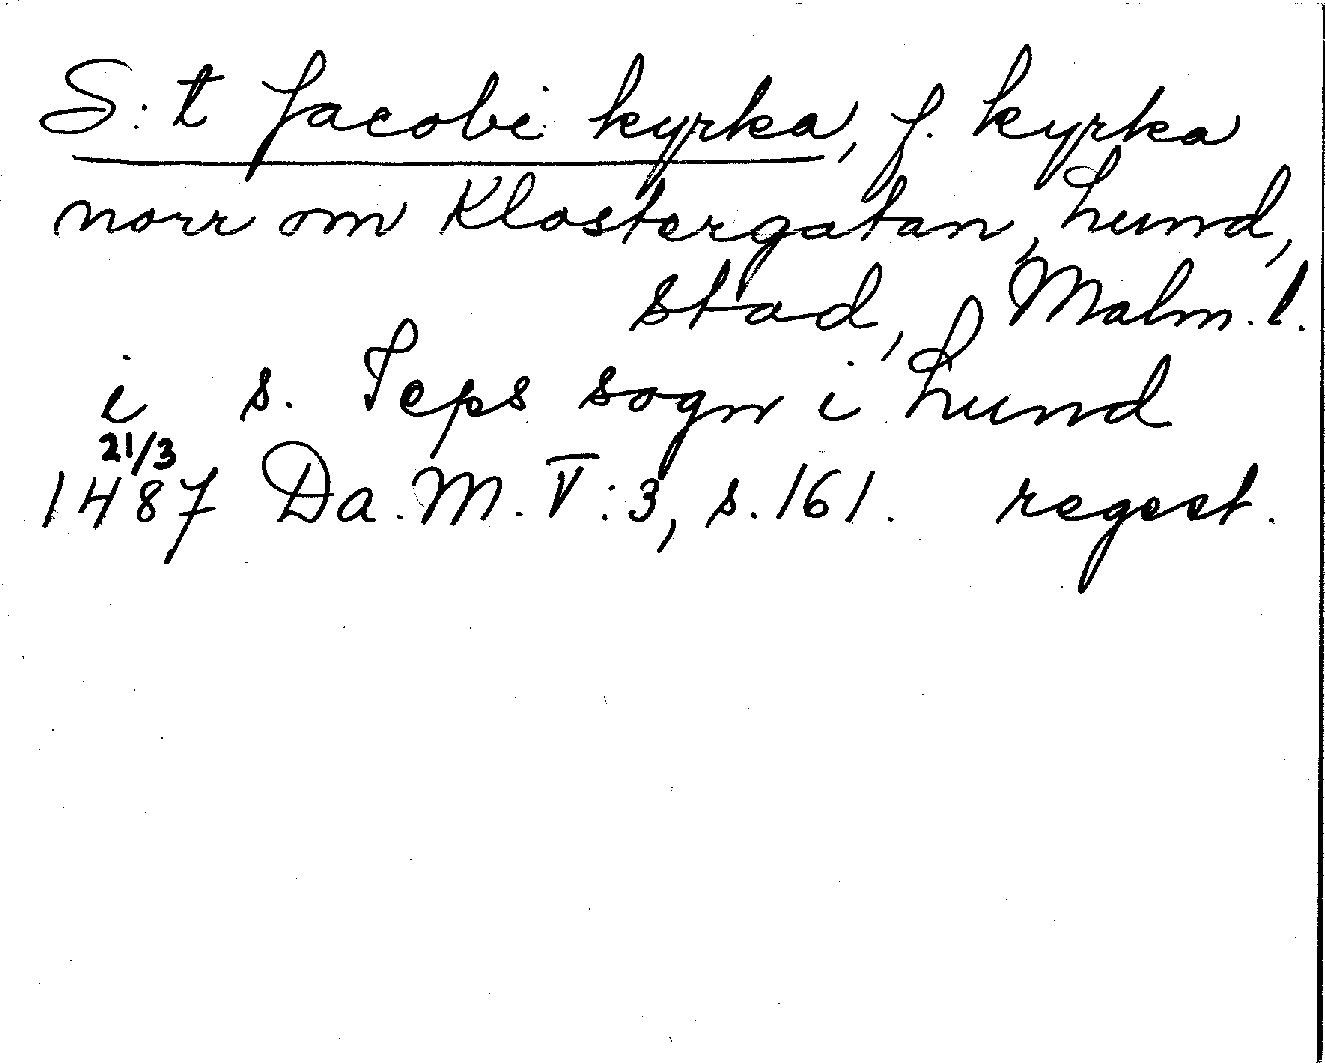 S:t Jacobi kyrka, f. kyrka
norr om Klostergatan, Lund,
stad, Malm. l.
i s. Jeps sogn i Lund
21/3
1487 Da. M. V:3, s. 161. regest.